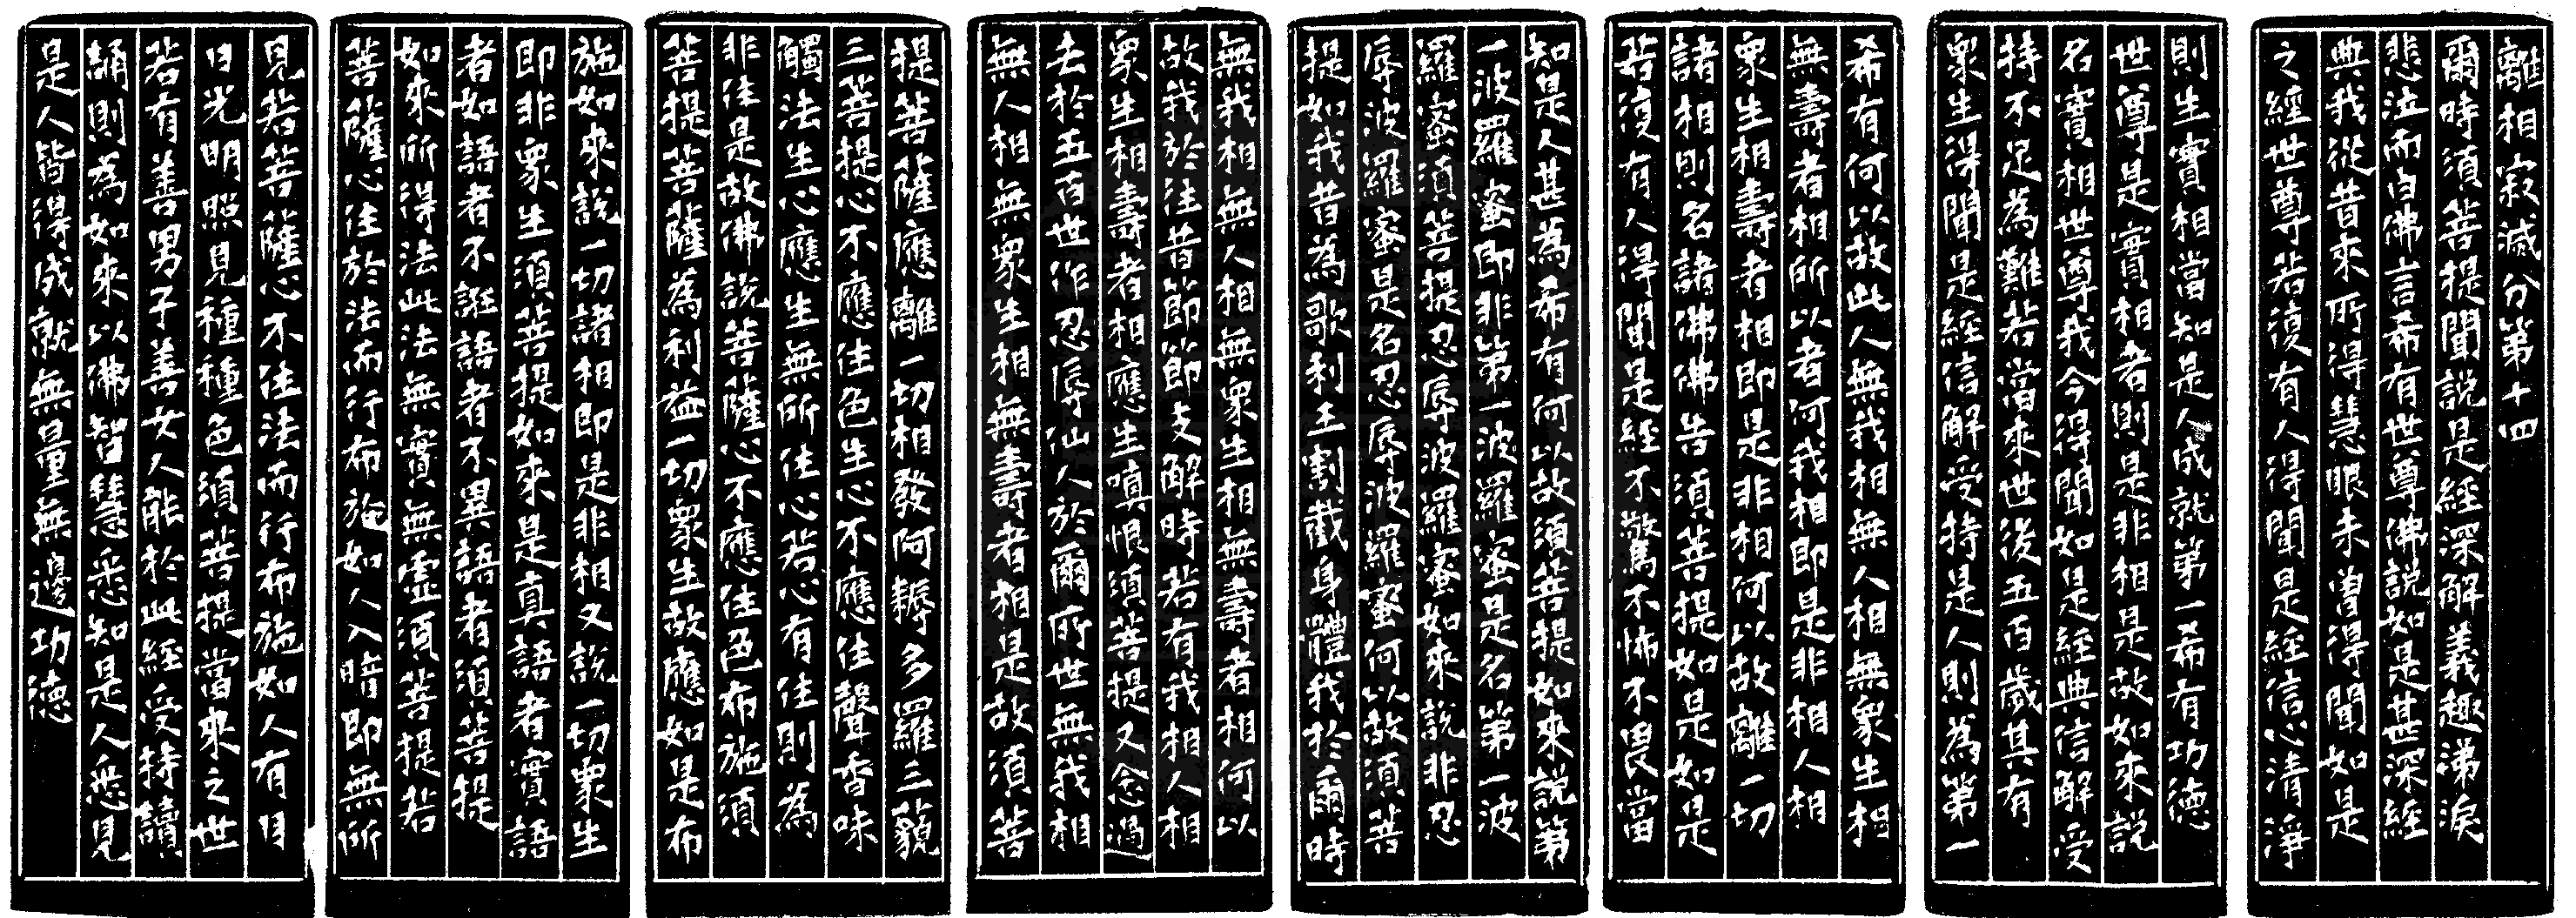 離相寂滅分第十四
爾時須菩提聞說是經深解義趣涕淚
悲泣而白佛言希有世尊佛說如是甚深經
典我從昔來所得慧眼未曾得聞如是
之經世尊若復有人得聞是經信心清淨
則生實相當知是人成就第一希有功德
世尊是實相者則是非相是故如來說
名實相世尊我今得聞如是經典信解受
持不足為難若當來世後五百歲其有
眾生得聞是經信解受持是人則為第一
希有何以故此人無我相無人相無眾生相
無壽者相所以者何我相即是非相人相
眾生相壽者相即是非相何以故離一切
諸相則名諸佛佛告須菩提如是如是
若復有人得聞是經不驚不怖不畏當
知是人甚為希有何以故須菩提如來說第
一波羅蜜即非第一波羅蜜是名第一波
羅蜜須菩提忍辱波羅蜜如來說非忍
辱波羅蜜是名忍辱波羅蜜何以故須菩
提如我昔為歌利王割截身體我於爾時
無我相無人相無眾生相無壽者相何以
故我於往昔節節支解時若有我相人相
眾生相壽者相應生嗔恨須菩提又念過
去於五百世作忍辱仙人於爾所世無我相
無人相無眾生相無壽者相是故須菩
提菩薩應離一切相發阿耨多羅三藐
三菩提心不應住色生心不應住聲香味
觸法生心應生無所住心若心有住則為
非住是故佛說菩薩心不應住色布施須
菩提菩薩為利益一切眾生故應如是布
施如來說一切諸相即是非相又說一切眾生
即非眾生須菩提如來是真語者實語
者如語者不誑語者不異語者須菩提
如來所得法此法無實無虛須菩提若
菩薩心住於法而行布施如人入暗即無所
見若菩薩心不住法而行布施如人有目
日光明照見種種色須菩提當來之世
若有善男子善女人能於此經受持讀
誦則為如來以佛智慧悉知是人悉見
是人皆得成就無量無邊功德